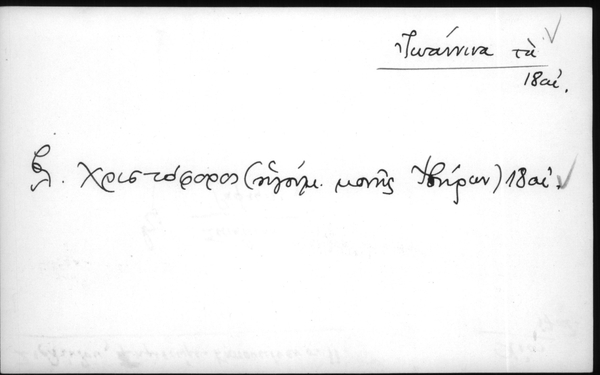 Ἰωάννινα τὰ
18 αἰ.
Βλ. Χριστόφορος (ἡγούμ. μονῆς Ἰβήρων) 18 αἰ.